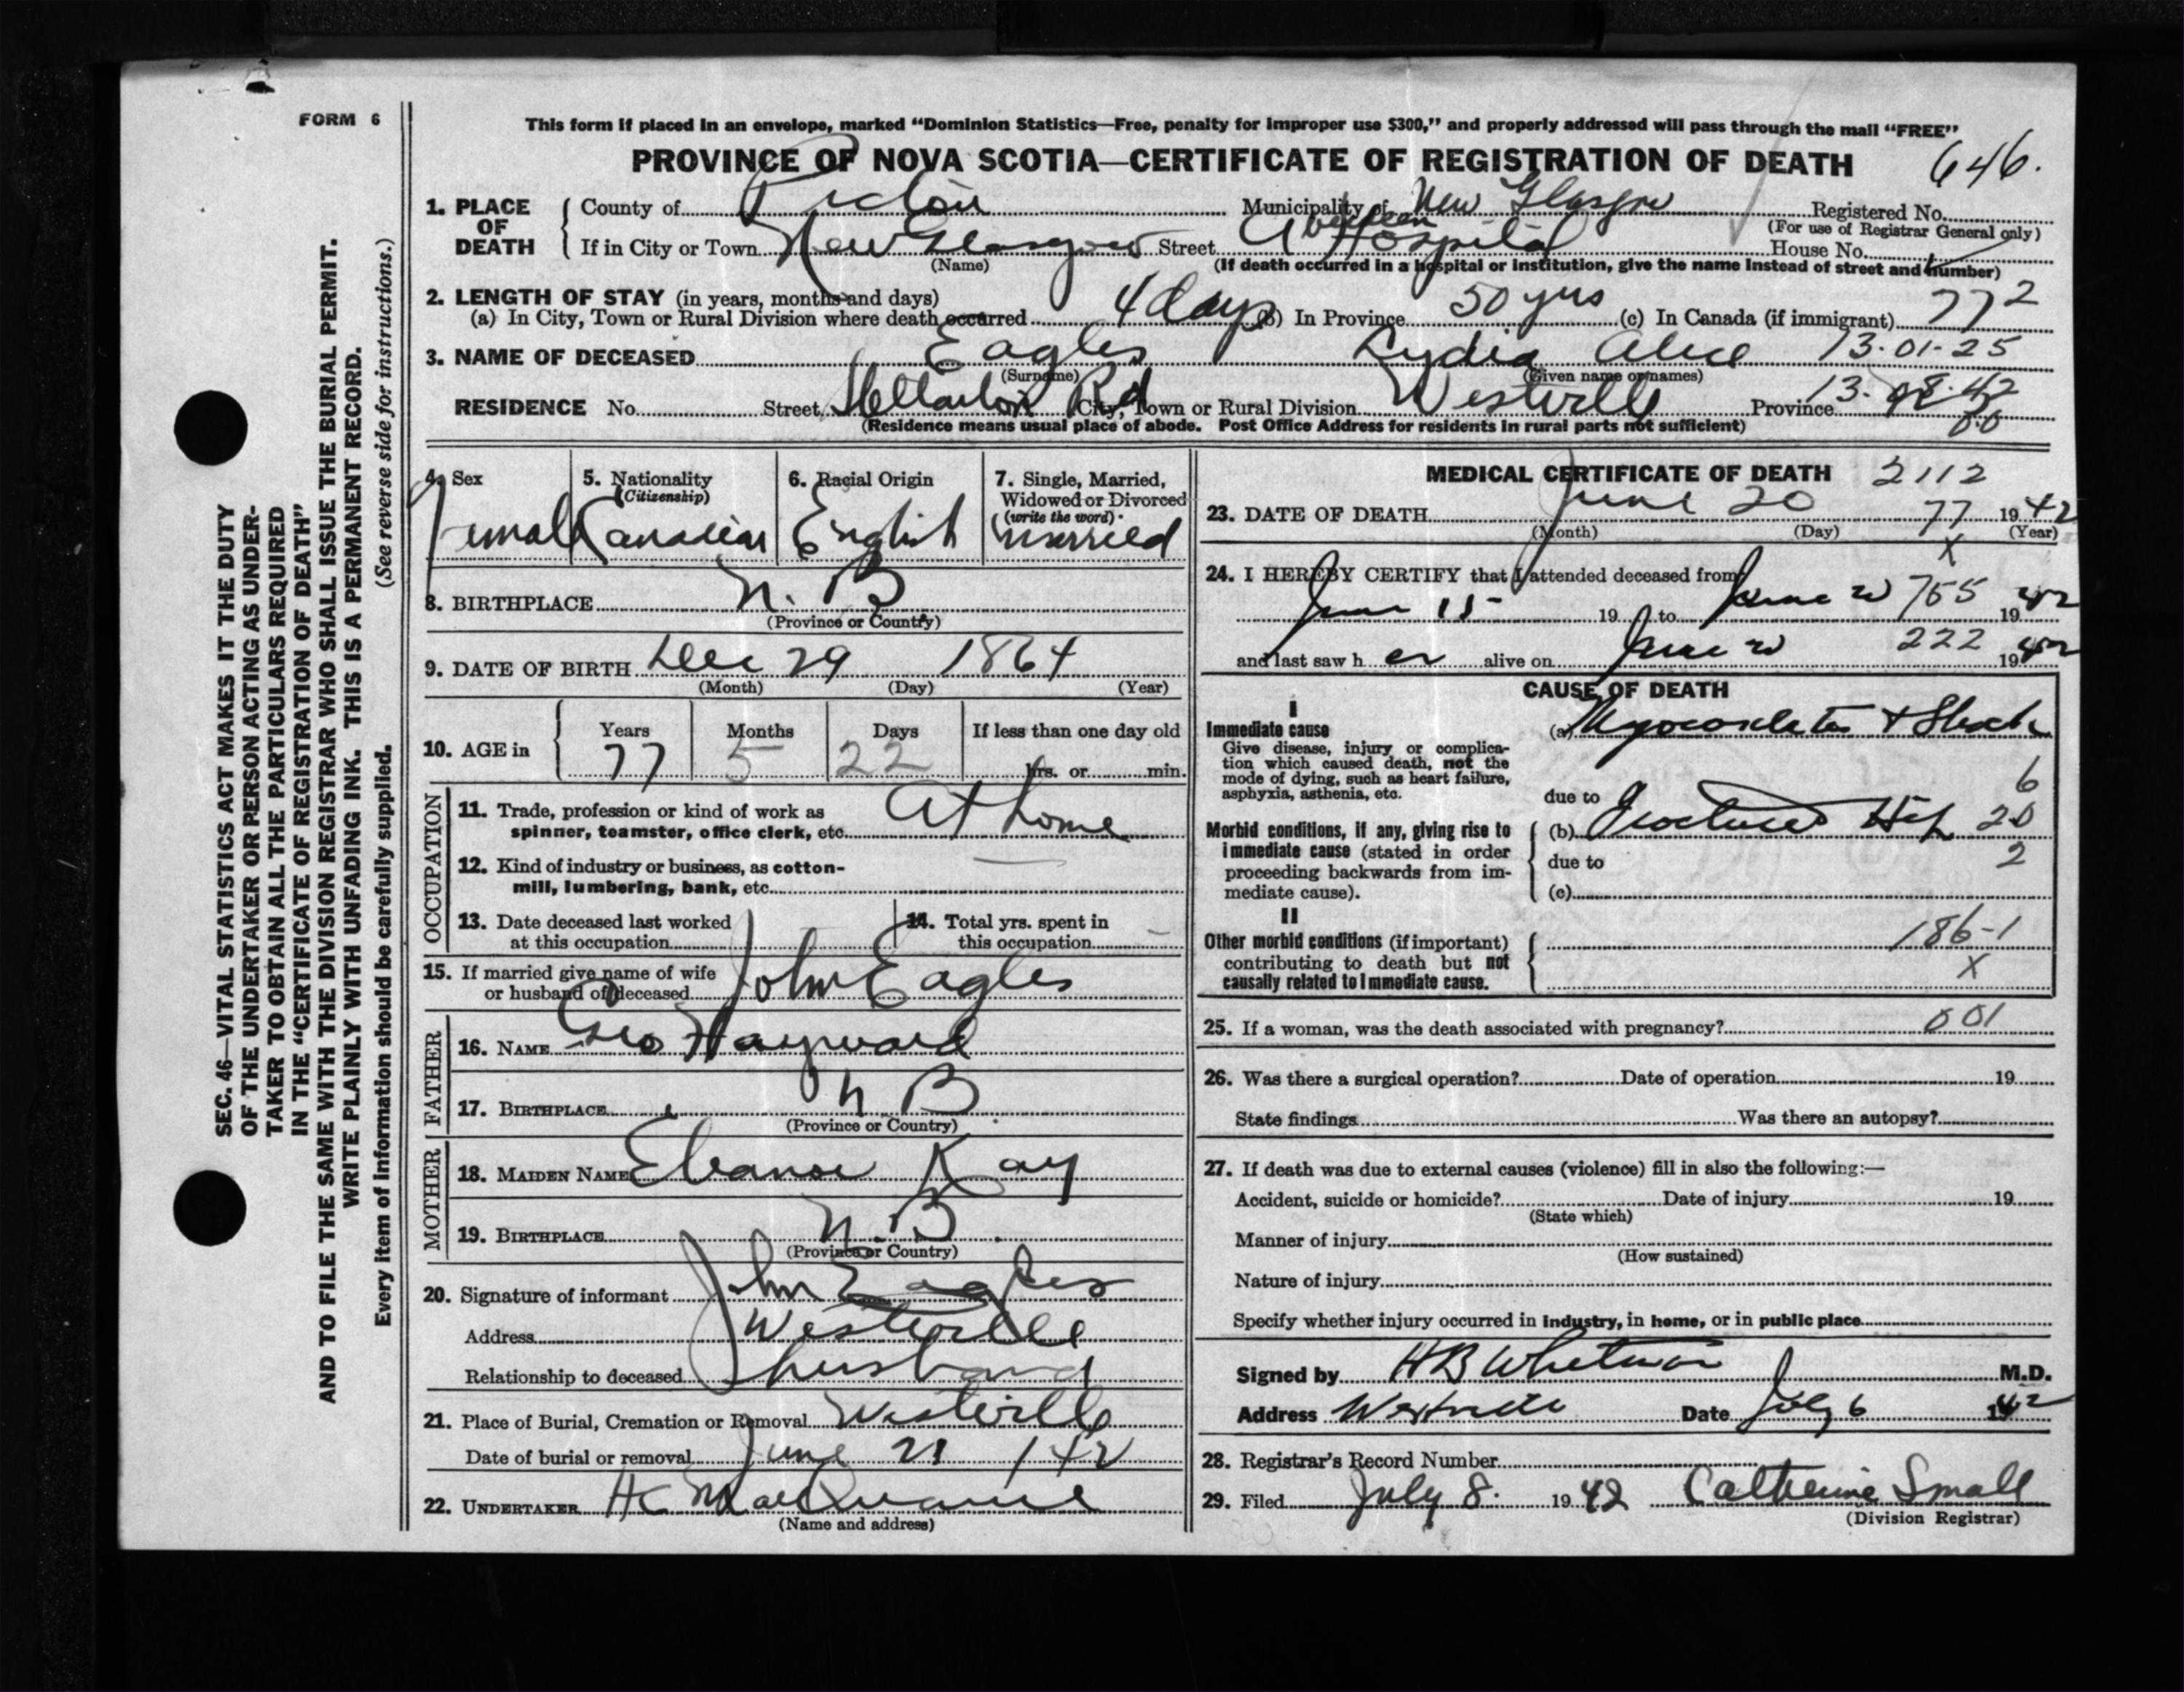 FORM 6
SEC. 46—VITAL STATISTICS ACT MAKES IT THE DUTY
OF THE UNDERTAKER OR PERSON ACTING AS UNDER-
TAKER TO OBTAIN ALL THE PARTICULARS REQUIRED
IN THE "CERTIFICATE OF REGISTRATION OF DEATH"
AND TO FILE THE SAME WITH THE DIVISION REGISTRAR WHO SHALL ISSUE THE BURIAL PERMIT.
WRITE PLAINLY WITH UNFADING INK. THIS IS A PERMANENT RECORD.
Every item of information should be carefully supplied. (See reverse side for instructions.)
This form if placed in an envelope, marked "Dominion Statistics—Free, penalty for improper use $300," and properly addressed will pass through the mail "FREE"
PROVINCE OF NOVA SCOTIA—CERTIFICATE OF REGISTRATION OF DEATH 646.
1. PLACE OF DEATH { County of Pictou Municipality of New Glasgow Registered No.
(For use of Registrar General only)
If in City or Town New Glasgow Street Aberdeen Hospital House No.
(Name) (If death occurred in a hospital or institution, give the name instead of street and number)
2. LENGTH OF STAY (in years, months and days)
(a) In City, Town or Rural Division where death occurred 4 days (b) In Province 50 yrs (c) In Canada (if immigrant) 772
3. NAME OF DECEASED Eagles Lydia Alice 13-01-25
(Surname) (Given name or names)
RESIDENCE No. Street Stellarton Rd City, Town or Rural Division Westville Province 13. 42
(Residence means usual place of abode. Post Office Address for residents in rural parts not sufficient) 00
4. Sex Female
5. Nationality (Citizenship) Canadian
6. Racial Origin English
7. Single, Married, Widowed or Divorced (write the word) Married
8. BIRTHPLACE N. B.
(Province or Country)
9. DATE OF BIRTH Dec 29 1864
(Month) (Day) (Year)
10. AGE in Years 77 Months 5 Days 22 If less than one day old hrs. or min.
OCCUPATION
11. Trade, profession or kind of work as
spinner, teamster, office clerk, etc. At home
12. Kind of industry or business, as cotton-
mill, lumbering, bank, etc. —
13. Date deceased last worked
at this occupation
14. Total yrs. spent in
this occupation —
15. If married give name of wife
or husband of deceased John Eagles
FATHER
16. NAME Geo Hayward
17. BIRTHPLACE N B
(Province or Country)
MOTHER
18. MAIDEN NAME Eleanor Kay
19. BIRTHPLACE N. B.
(Province or Country)
20. Signature of informant John Eagles
Address Westville
Relationship to deceased husband
21. Place of Burial, Cremation or Removal Westville
Date of burial or removal June 21 /42
22. UNDERTAKER H C MacQuarrie
(Name and address)
MEDICAL CERTIFICATE OF DEATH 2112
23. DATE OF DEATH June 20 77 1942
(Month) (Day) (Year)
X
24. I HEREBY CERTIFY that I attended deceased from
June 15 19 to June 20 765 1942
and last saw her alive on June 20 222 1942
CAUSE OF DEATH
I
Immediate cause
Give disease, injury or complica-
tion which caused death, not the
mode of dying, such as heart failure,
asphyxia, asthenia, etc.
(a) Myocarditis + Shock
6
due to
Morbid conditions, if any, giving rise to
immediate cause (stated in order
proceeding backwards from im-
mediate cause).
(b) Fractured Hip 20
due to 2
(c)
II
Other morbid conditions (if important)
contributing to death but not
causally related to immediate cause.
186-1
X
25. If a woman, was the death associated with pregnancy? 001
26. Was there a surgical operation? Date of operation 19
State findings Was there an autopsy?
27. If death was due to external causes (violence) fill in also the following:—
Accident, suicide or homicide? Date of injury 19
(State which)
Manner of injury
(How sustained)
Nature of injury
Specify whether injury occurred in industry, in home, or in public place
Signed by H B Whitman M.D.
Address Westville Date July 6 1942
28. Registrar's Record Number
29. Filed July 8. 1942 Catherine Small
(Division Registrar)